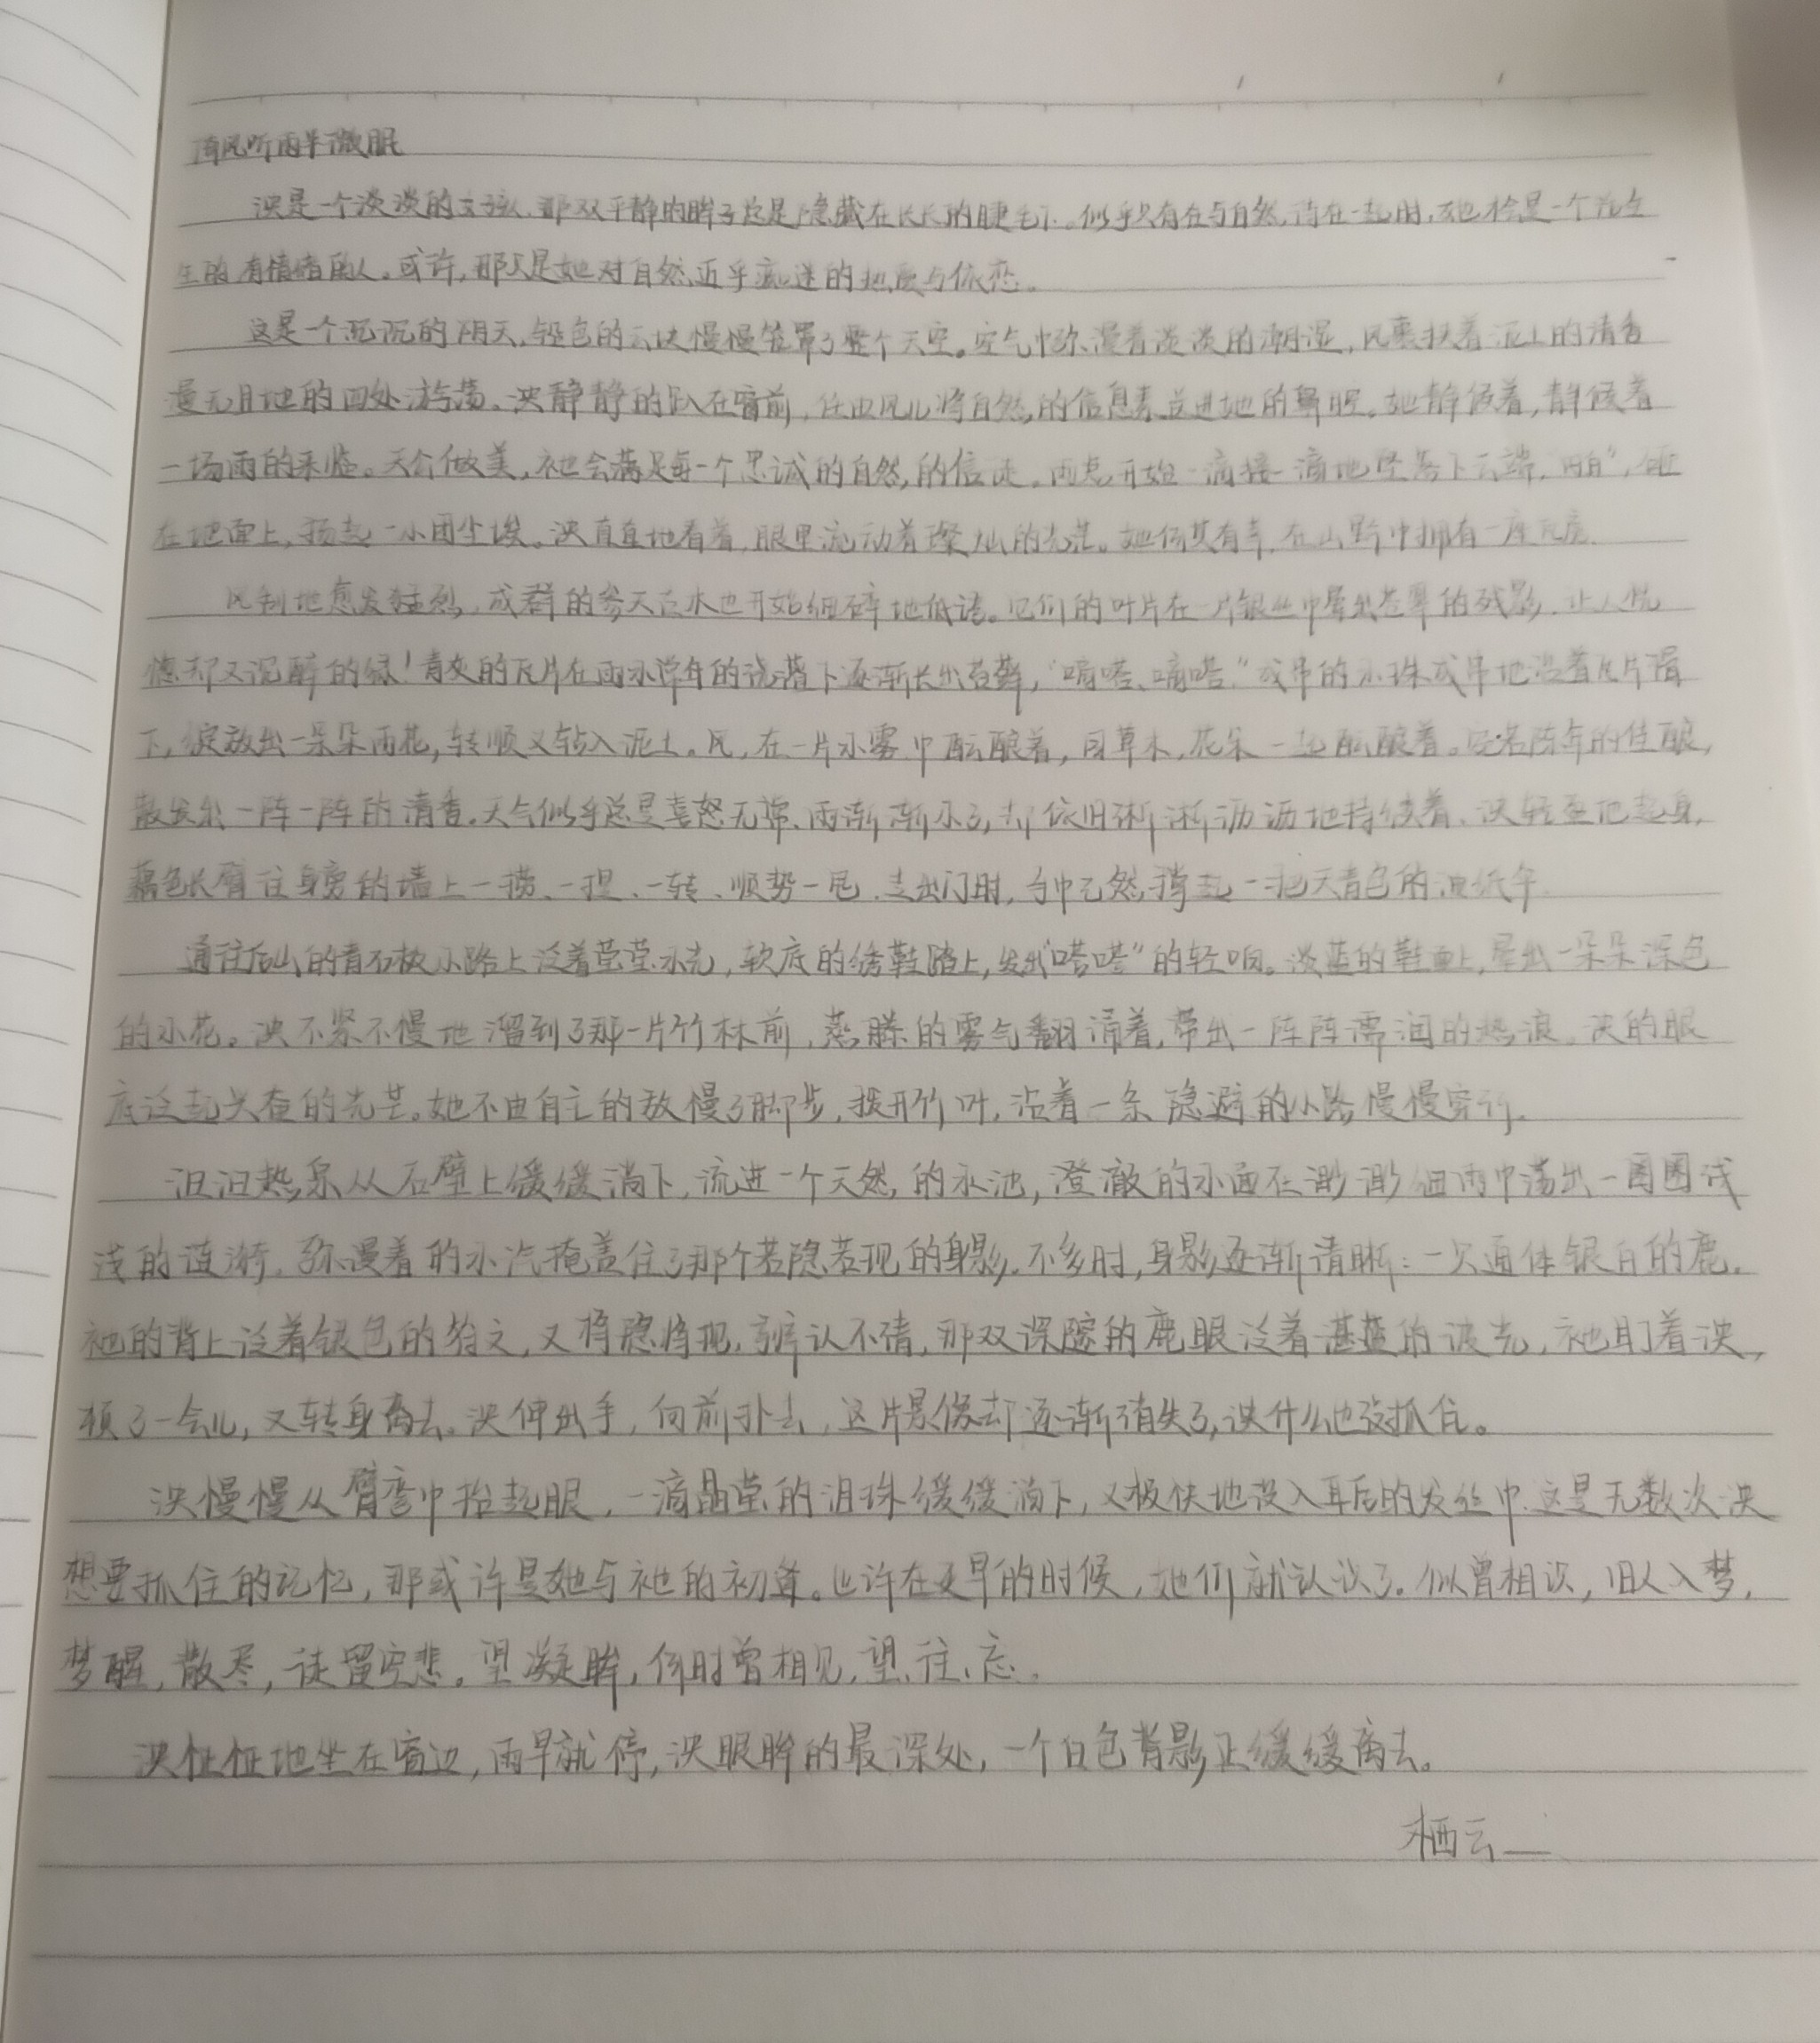 倚风听雨半微眠
泱是一个淡淡的女孩，那双平静的眸子总是隐藏在长长的睫毛下。似乎只有在与自然待在一起时，她才会是一个活生
生的有情绪的人。或许，那只是她对自然近乎痴迷的热爱与依恋。
这是一个沉沉的阴天，铅色的云块慢慢笼罩了整个天空。空气中弥漫着淡淡的潮湿，风裹挟着泥土的清香
漫无目地的四处游荡。泱静静的趴在窗前，任由风儿将自然的信息素送进她的鼻腔。她静候着，静候着
一场雨的来临。天公做美，祂会满足每一个忠诚的自然的信徒。雨点开始一滴接一滴地坠落下云端，“啪”，砸
在地面上，扬起一小团尘埃。泱直直地看着，眼里流动着璨灿的光芒。她何其有幸，在山野中拥有一座瓦房。
风刮地愈发猛烈，成群的参天古木也开始细碎地低语。它们的叶片在一片银丝中晕出苍翠的残影，让人恍
惚却又沉醉的绿！青灰的瓦片在雨水常年的浇灌下逐渐长出苔藓，“嘀嗒、嘀嗒”成串的水珠成串地沿着瓦片滑
下，绽放出一朵朵雨花，转顺又钻入泥土。风，在一片水雾中酝酿着，同草木，花朵一起酝酿着。宛若陈年的佳酿，
散发出一阵一阵的清香。天气似乎总是喜怒无常、雨渐渐小了，却依旧淅淅沥沥地持续着、泱轻盈地起身，
藕色长臂往身旁的墙上一捞、一捏、一转、顺势一甩、走出门时，手中已然撑起一把天青色的油纸伞。
通往后山的青石板小路上泛着莹莹水光，软底的绣鞋踏上，发出“嗒嗒”的轻响。淡蓝的鞋面上，晕出一朵朵深色
的水花。泱不紧不慢地溜到了那一片竹林前，蒸腾的雾气翻涌着，带出一阵阵濡润的热浪。泱的眼
底泛起兴奋的光芒。她不由自主的放慢了脚步，拨开竹叶，沿着一条隐避的小路慢慢穿行。
汩汩热泉从石壁上缓缓淌下，流进一个天然的水池，澄澈的水面在渺渺细雨中荡出一圈圈浅
浅的涟漪。弥漫着的水汽掩盖住了那个若隐若现的身影。不多时，身影逐渐清晰：一只通体银白的鹿。
祂的背上泛着银色的符文，又将隐将现，辨认不清，那双深邃的鹿眼泛着湛蓝的波光，祂盯着泱，
顿了一会儿，又转身离去。泱伸出手，向前扑去，这片景像却逐渐消失了，泱什么也没抓住。
泱慢慢从臂弯中抬起眼，一滴晶莹的泪珠缓缓淌下，又极快地没入耳后的发丝中。这是无数次泱
想要抓住的记忆，那或许是她与祂的初逢。也许在更早的时候，她们就认识了。似曾相识，旧人入梦，
梦醒，散尽，徒留空悲。望凝眸，何时曾相见，望、往、忘。
泱怔怔地坐在窗边，雨早就停，泱眼眸的最深处，一个白色背影正缓缓离去。
栖云